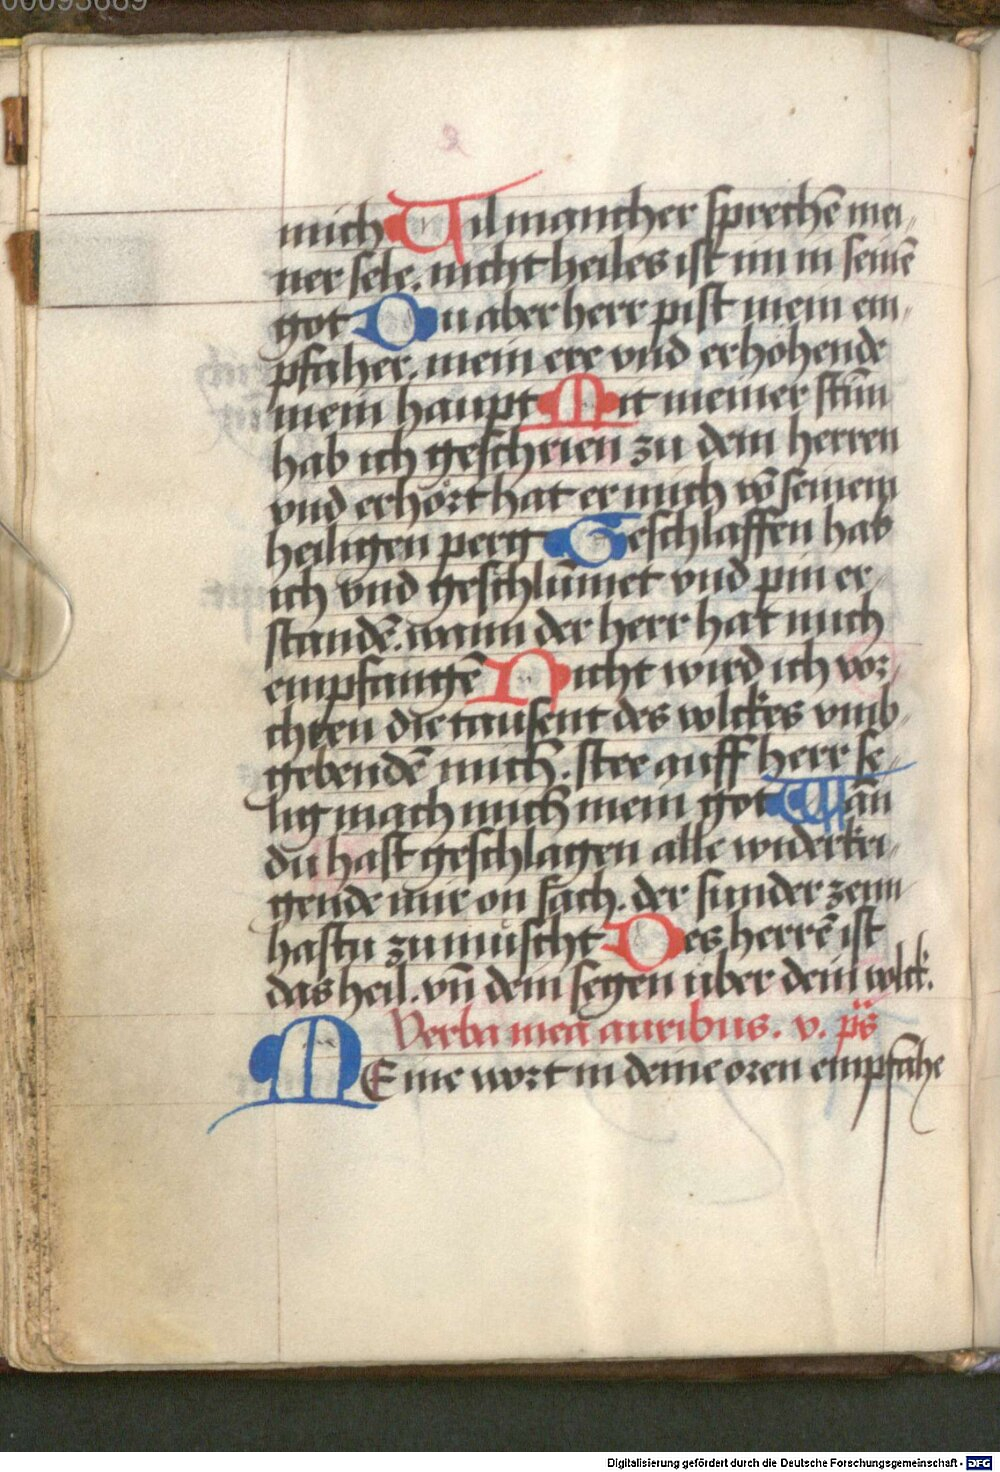 00093669
mich Vil mancher sprechē mei„
ner sele. nicht heiles ist im in seinē
got Du aber herr pist mein em„
pfaher. mein ere vnd erhöhende
mein haupt Mit meiner stim̄
hab ich geschrien zu dem herren
vnd erhört hat er mich vō seinem
heiligen perg Geschlaffen hab
ich vnd geschlūmet vnd pin er„
standē. wann der herr hat mich
empfangē Nicht wird ich vor„
chten die tausent des volckes vmb„
gebendē mich. stee auff herr se„
lig mach mich mein got Wān
du hast geschlagen alle widerkri„
gende mir on sach. der sunder zenn
hastu zumüscht Des herrē ist
das heil. vn̄ dein segen über dein volck.
Verba mea auribus. v. ps̄
MEine wort in deine oren empfahe
Digitalisierung gefördert durch die Deutsche Forschungsgemeinschaft - DFG